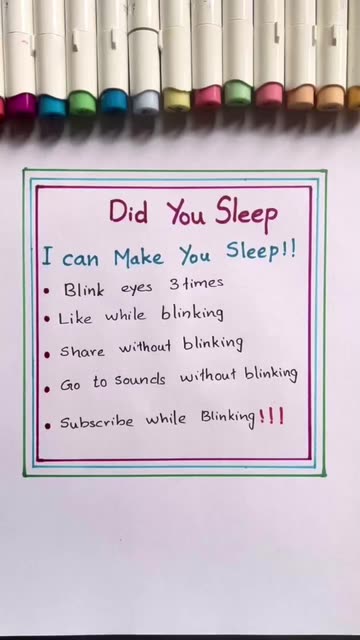 Did You Sleep
I can Make You Sleep!!
• Blink eyes 3 times
• Like while blinking
• Share without blinking
• Go to sounds without blinking
• Subscribe while Blinking!!!